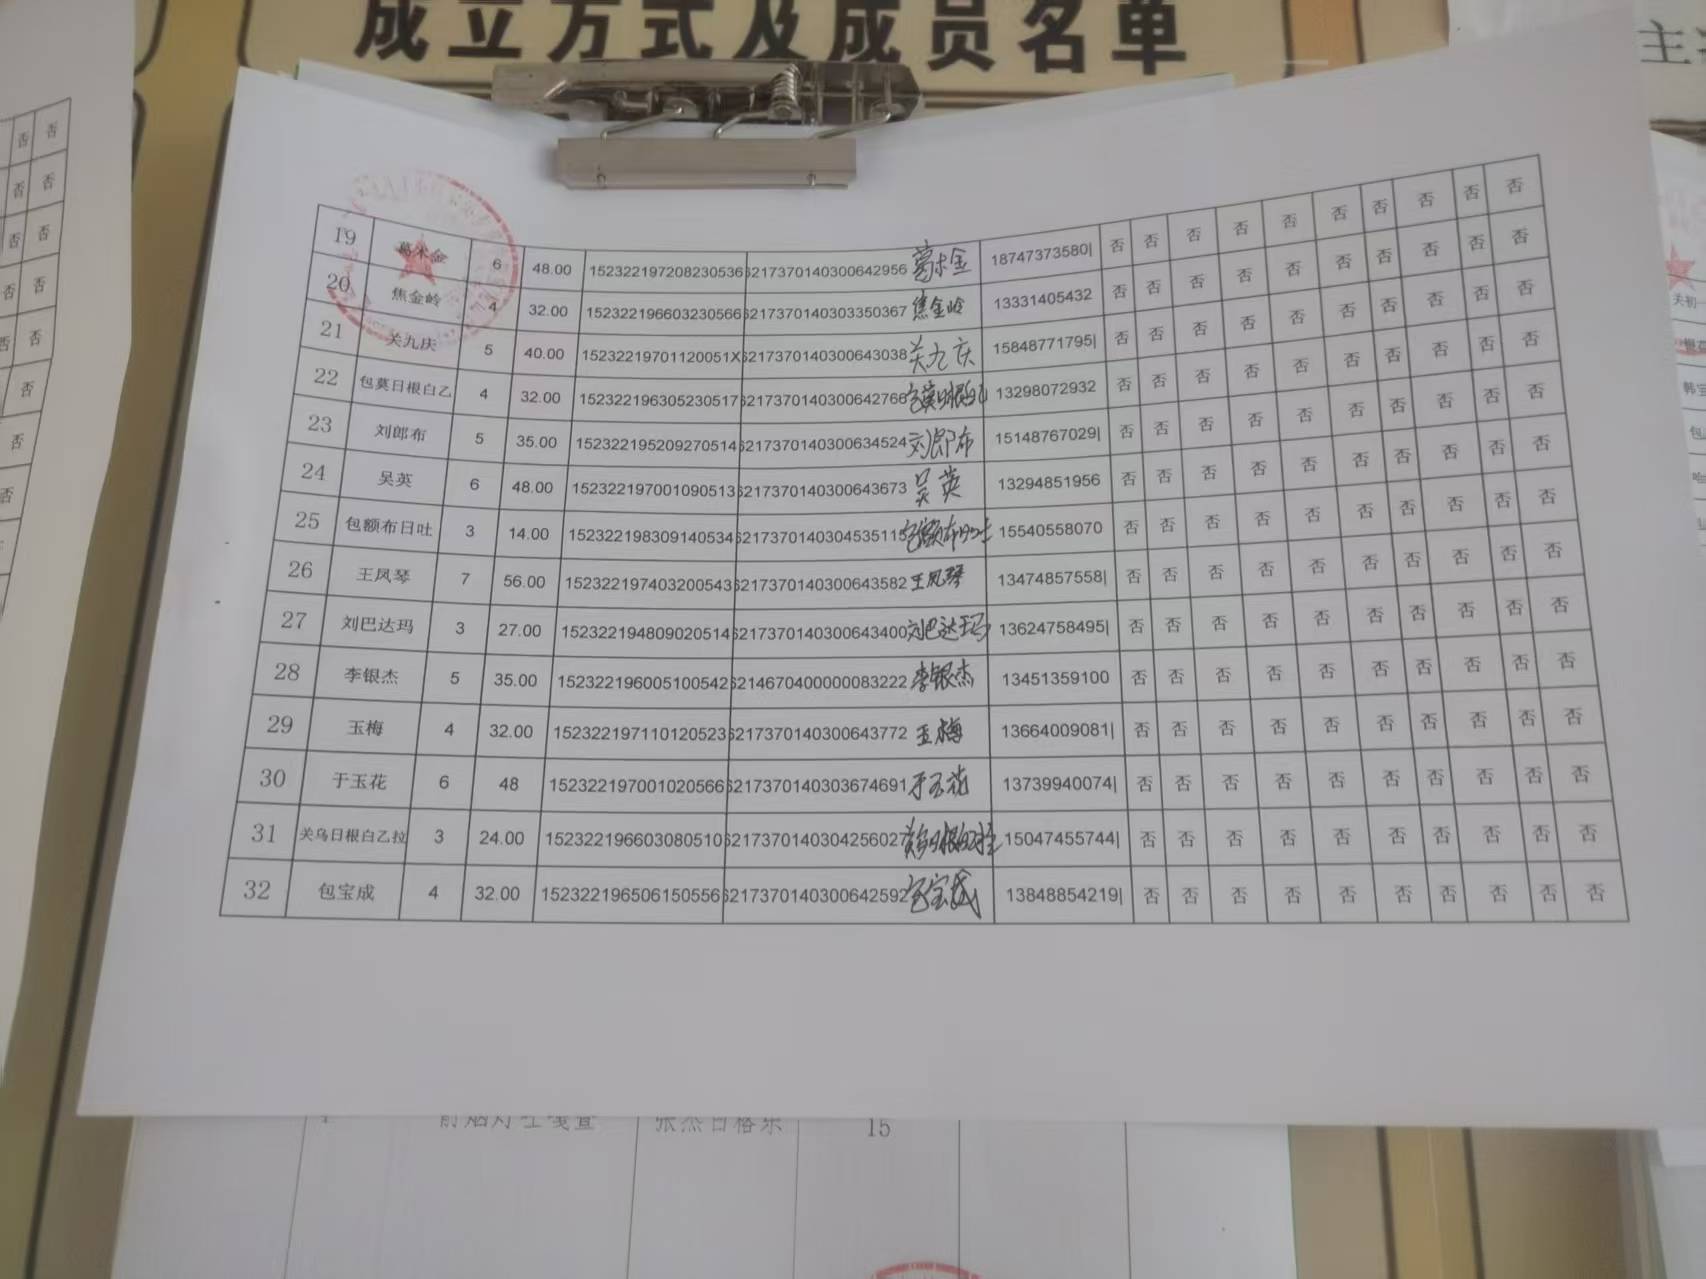 成立方式及成员名单
19 葛木金 6 48.00 152322197208230536 6217370140300642956 葛木金 18747373580| 否 否 否 否 否 否 否 否 否 否
20 焦金岭 4 32.00 152322196603230566 6217370140303350367 焦金岭 13331405432 否 否 否 否 否 否 否 否 否 否
21 关九庆 5 40.00 15232219701120051X 6217370140300643038 关九庆 15848771795| 否 否 否 否 否 否 否 否 否 否
22 包莫日根白乙 4 32.00 152322196305230517 6217370140300642766 13298072932 否 否 否 否 否 否 否 否 否 否
23 刘郎布 5 35.00 152322195209270514 6217370140300634524 刘郎布 15148767029| 否 否 否 否 否 否 否 否 否 否
24 吴英 6 48.00 152322197001090513 6217370140300643673 吴英 13294851956 否 否 否 否 否 否 否 否 否 否
25 包额布日吐 3 14.00 152322198309140534 6217370140304535115 包额布日吐 15540558070 否 否 否 否 否 否 否 否 否 否
26 王凤琴 7 56.00 152322197403200543 6217370140300643582 王凤琴 13474857558| 否 否 否 否 否 否 否 否 否 否
27 刘巴达玛 3 27.00 152322194809020514 6217370140300643400 刘巴达玛 13624758495| 否 否 否 否 否 否 否 否 否 否
28 李银杰 5 35.00 152322196005100542 6214670400000083222 李银杰 13451359100 否 否 否 否 否 否 否 否 否 否
29 玉梅 4 32.00 152322197110120523 6217370140300643772 玉梅 13664009081| 否 否 否 否 否 否 否 否 否 否
30 于玉花 6 48 152322197001020566 6217370140303674691 于玉花 13739940074| 否 否 否 否 否 否 否 否 否 否
31 关乌日根白乙拉 3 24.00 152322196603080510 6217370140304256027 15047455744| 否 否 否 否 否 否 否 否 否 否
32 包宝成 4 32.00 152322196506150556 6217370140300642592 包宝成 13848854219| 否 否 否 否 否 否 否 否 否 否
15